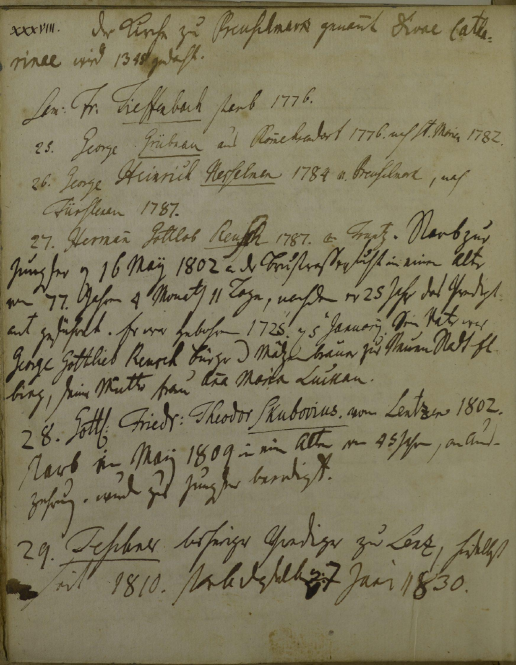 XXXVIII. der Kirche zu Preuschmark genannt Divae Catha-
rinae wird 1348 gedacht.
Sam: Fr. Tieffenbach starb 1776.
25. George Grübnau aus 1776. nach St. Marien 1782.
26. George Heinrich 1784 v. Preuschmark, nach
Fürstenau 1787.
27. Herman Gottlob Reusch 1787. Starb zur
Jungfer 16 May 1802 a. der Brustwassersucht in einem Alter
von 77 Jahren 4 Monath 11 Tage, nachdem er 25 Jahr das Predigt-
amt geführt. Er war gebohren 1725, 5 Januarij. Sein Vater war
George Gottlieb Reusch Bürger Mälzenbrauer zur Neuen Stadt El-
bing, seine Mutter Frau Anna Maria Luckau.
28. Gottf: Friedr: Theodor Skubovius. von Lentzen 1802.
Starb im May 1809 in ein Alter von 45 Jahren, an Aus-
zehrung. wurde zu Jungfer beerdigt.
29. bisheriger Prediger zu Lenz,
seit 1810. starb 27 Juni 1830.